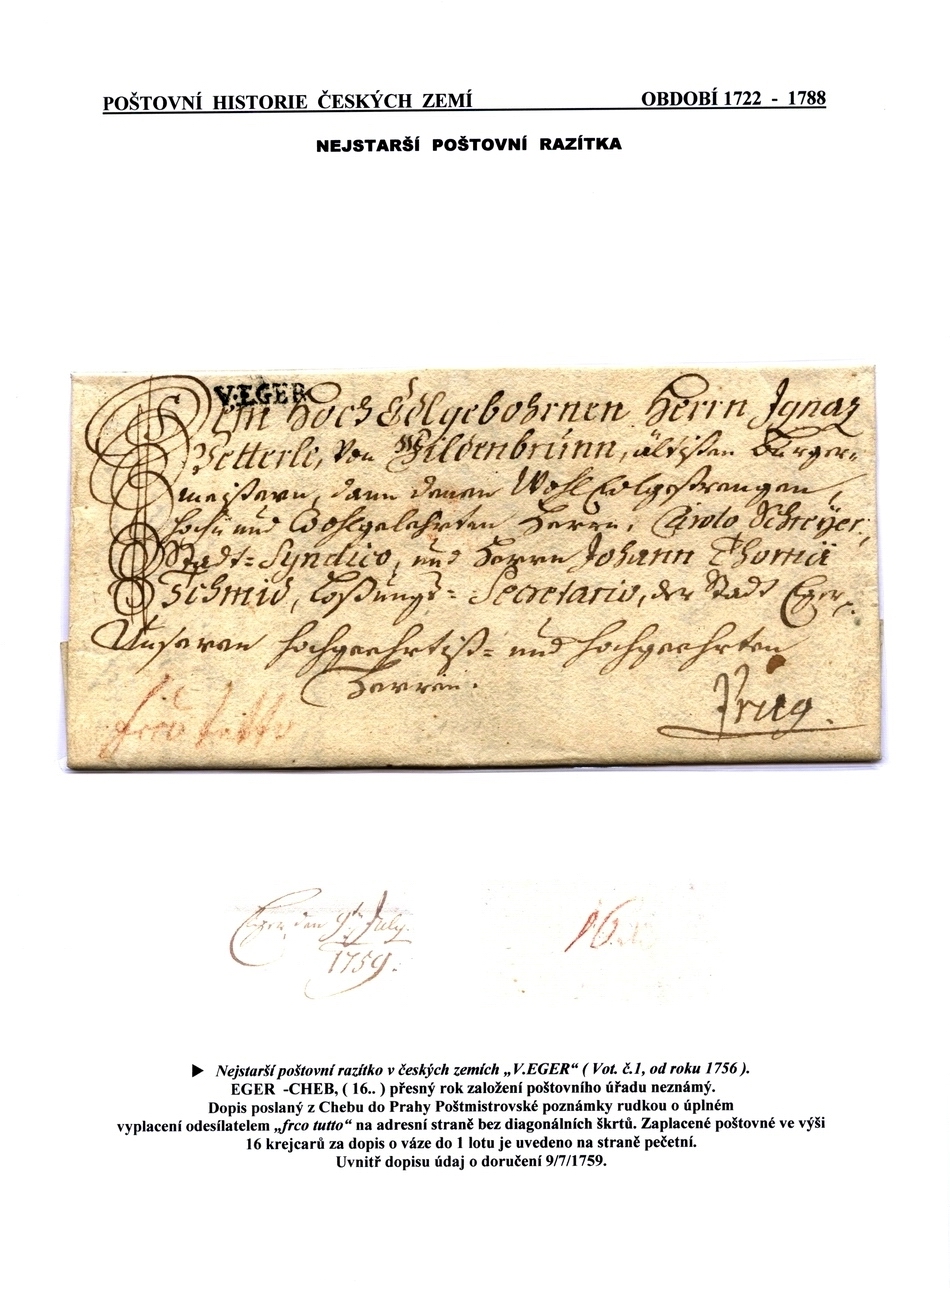 POŠTOVNÍ HISTORIE ČESKÝCH ZEMÍ OBDOBÍ 1722 - 1788
NEJSTARŠÍ POŠTOVNÍ RAZÍTKA
V.EGER
Dem Hoch Edlgebohrnen Herrn Ignaz
Vetterle, von Wildenbrunn, ältisten Burger-
meistern, dann denen Wohl Edlgestrengen,
und Wohlgelehrten Herrn, Carolo Schreÿer,
Stadt-Syndico, und Herrn Johann Thomä
Schmid, Losungs- Secretario, der Stadt Eger.
Unseren hochgeehrtist- und hochgeehrten
Herren.
Prag.
frco tutto
Eger den 9ten July
1759.
16
▶ Nejstarší poštovní razítko v českých zemích „V.EGER“ ( Vot. č.1, od roku 1756 ).
EGER -CHEB, ( 16.. ) přesný rok založení poštovního úřadu neznámý.
Dopis poslaný z Chebu do Prahy Poštmistrovské poznámky rudkou o úplném
vyplacení odesílatelem „frco tutto“ na adresní straně bez diagonálních škrtů. Zaplacené poštovné ve výši
16 krejcarů za dopis o váze do 1 lotu je uvedeno na straně pečetní.
Uvnitř dopisu údaj o doručení 9/7/1759.